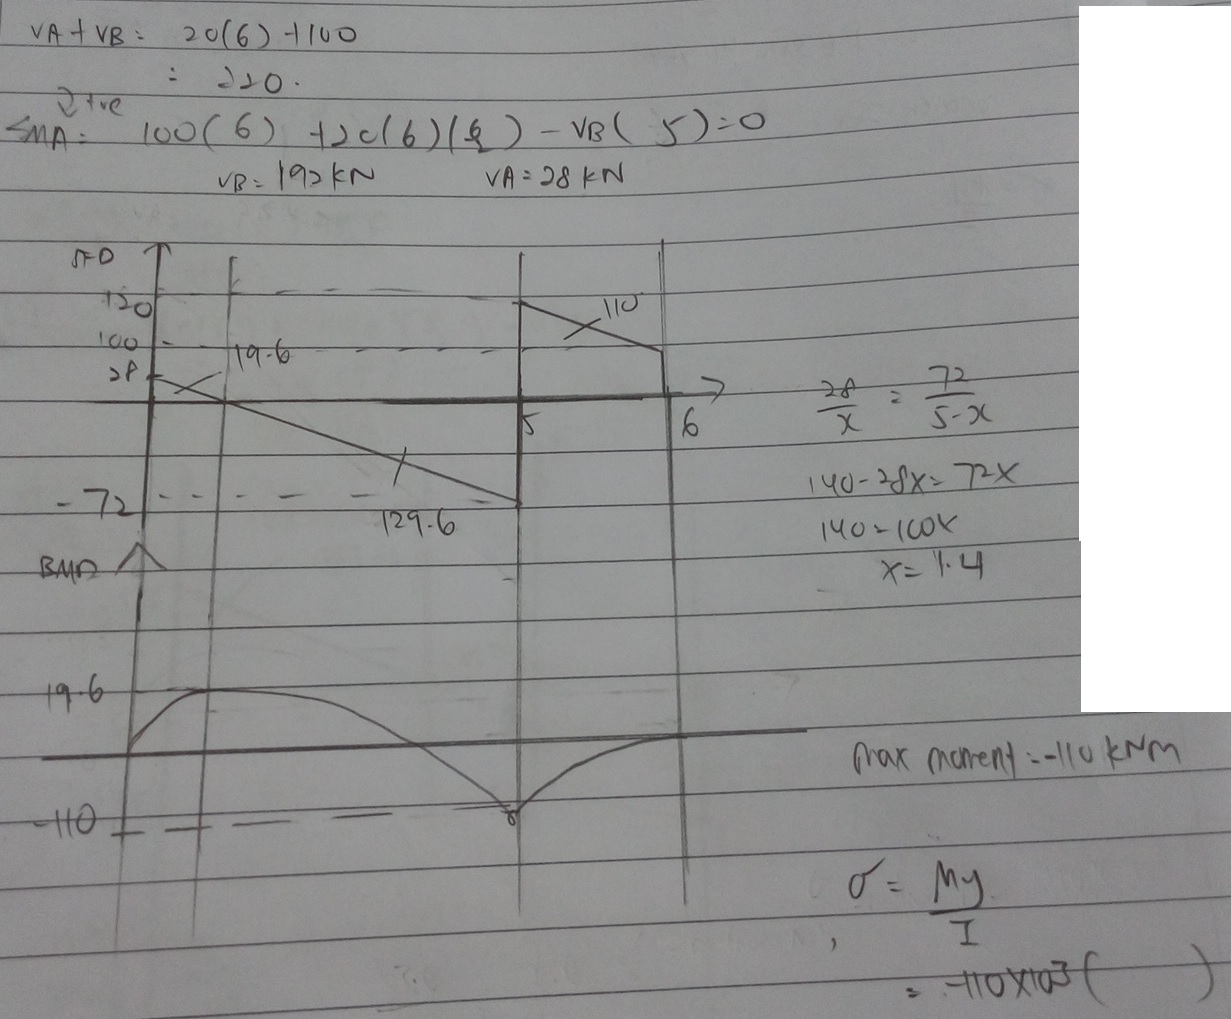 VA + VB = 20(6) + 100
= 220.
+ve
ΣMA = 100(6) + 20(6)(6/2) - VB(5) = 0
VB = 192 kN VA = 28 kN
SFD
120
110
100
19.6
28
5
6
-72
129.6
28/x = 72/5-x
140 - 28x = 72x
140 = 100x
x = 1.4
BMD
19.6
-110
max moment = -110 kNm
σ = My/I
= -110 x 10³ ( )